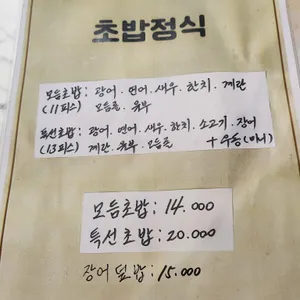 초밥정식
모듬초밥 : 광어 . 연어 . 새우 . 한치 . 계란
(11피스) 모듬훈 . 유부
특선초밥 : 광어 . 연어 . 새우 . 한치 . 소고기 . 장어
(13피스) 계란 . 유부 . 모듬훈 + 우동(미니)
모듬초밥 : 14.000
특선초밥 : 20.000
장어덮밥 : 15.000